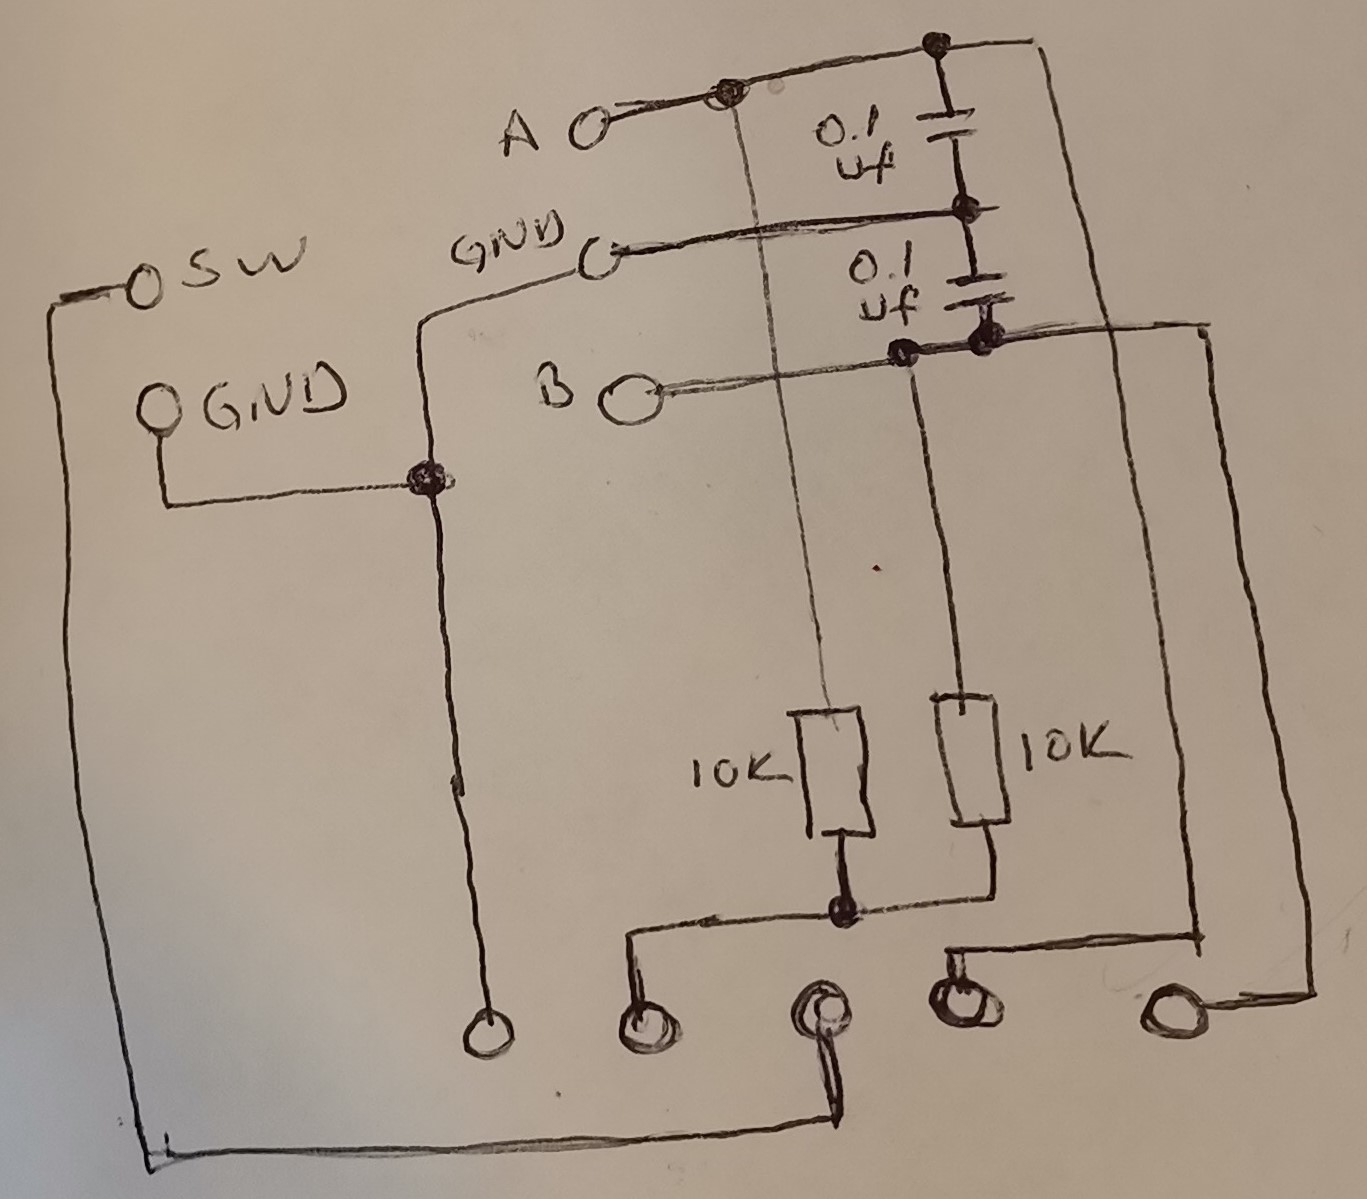 A
0.1
uf
GND
SW
0.1
uf
GND
B
10K
10K